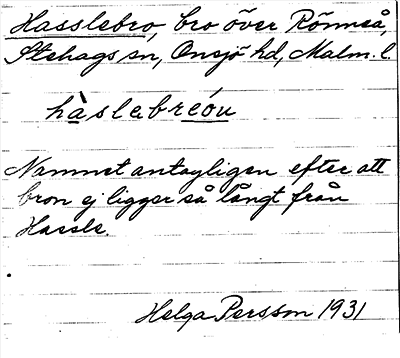 Hasslebro, bro över Rönneå,
Stehags sn, Onsjö hd, Malm. l.
hàslebreóu
Namnet antagligen efter att
bron ej ligger så långt från
Hassle.
Helga Persson 1931